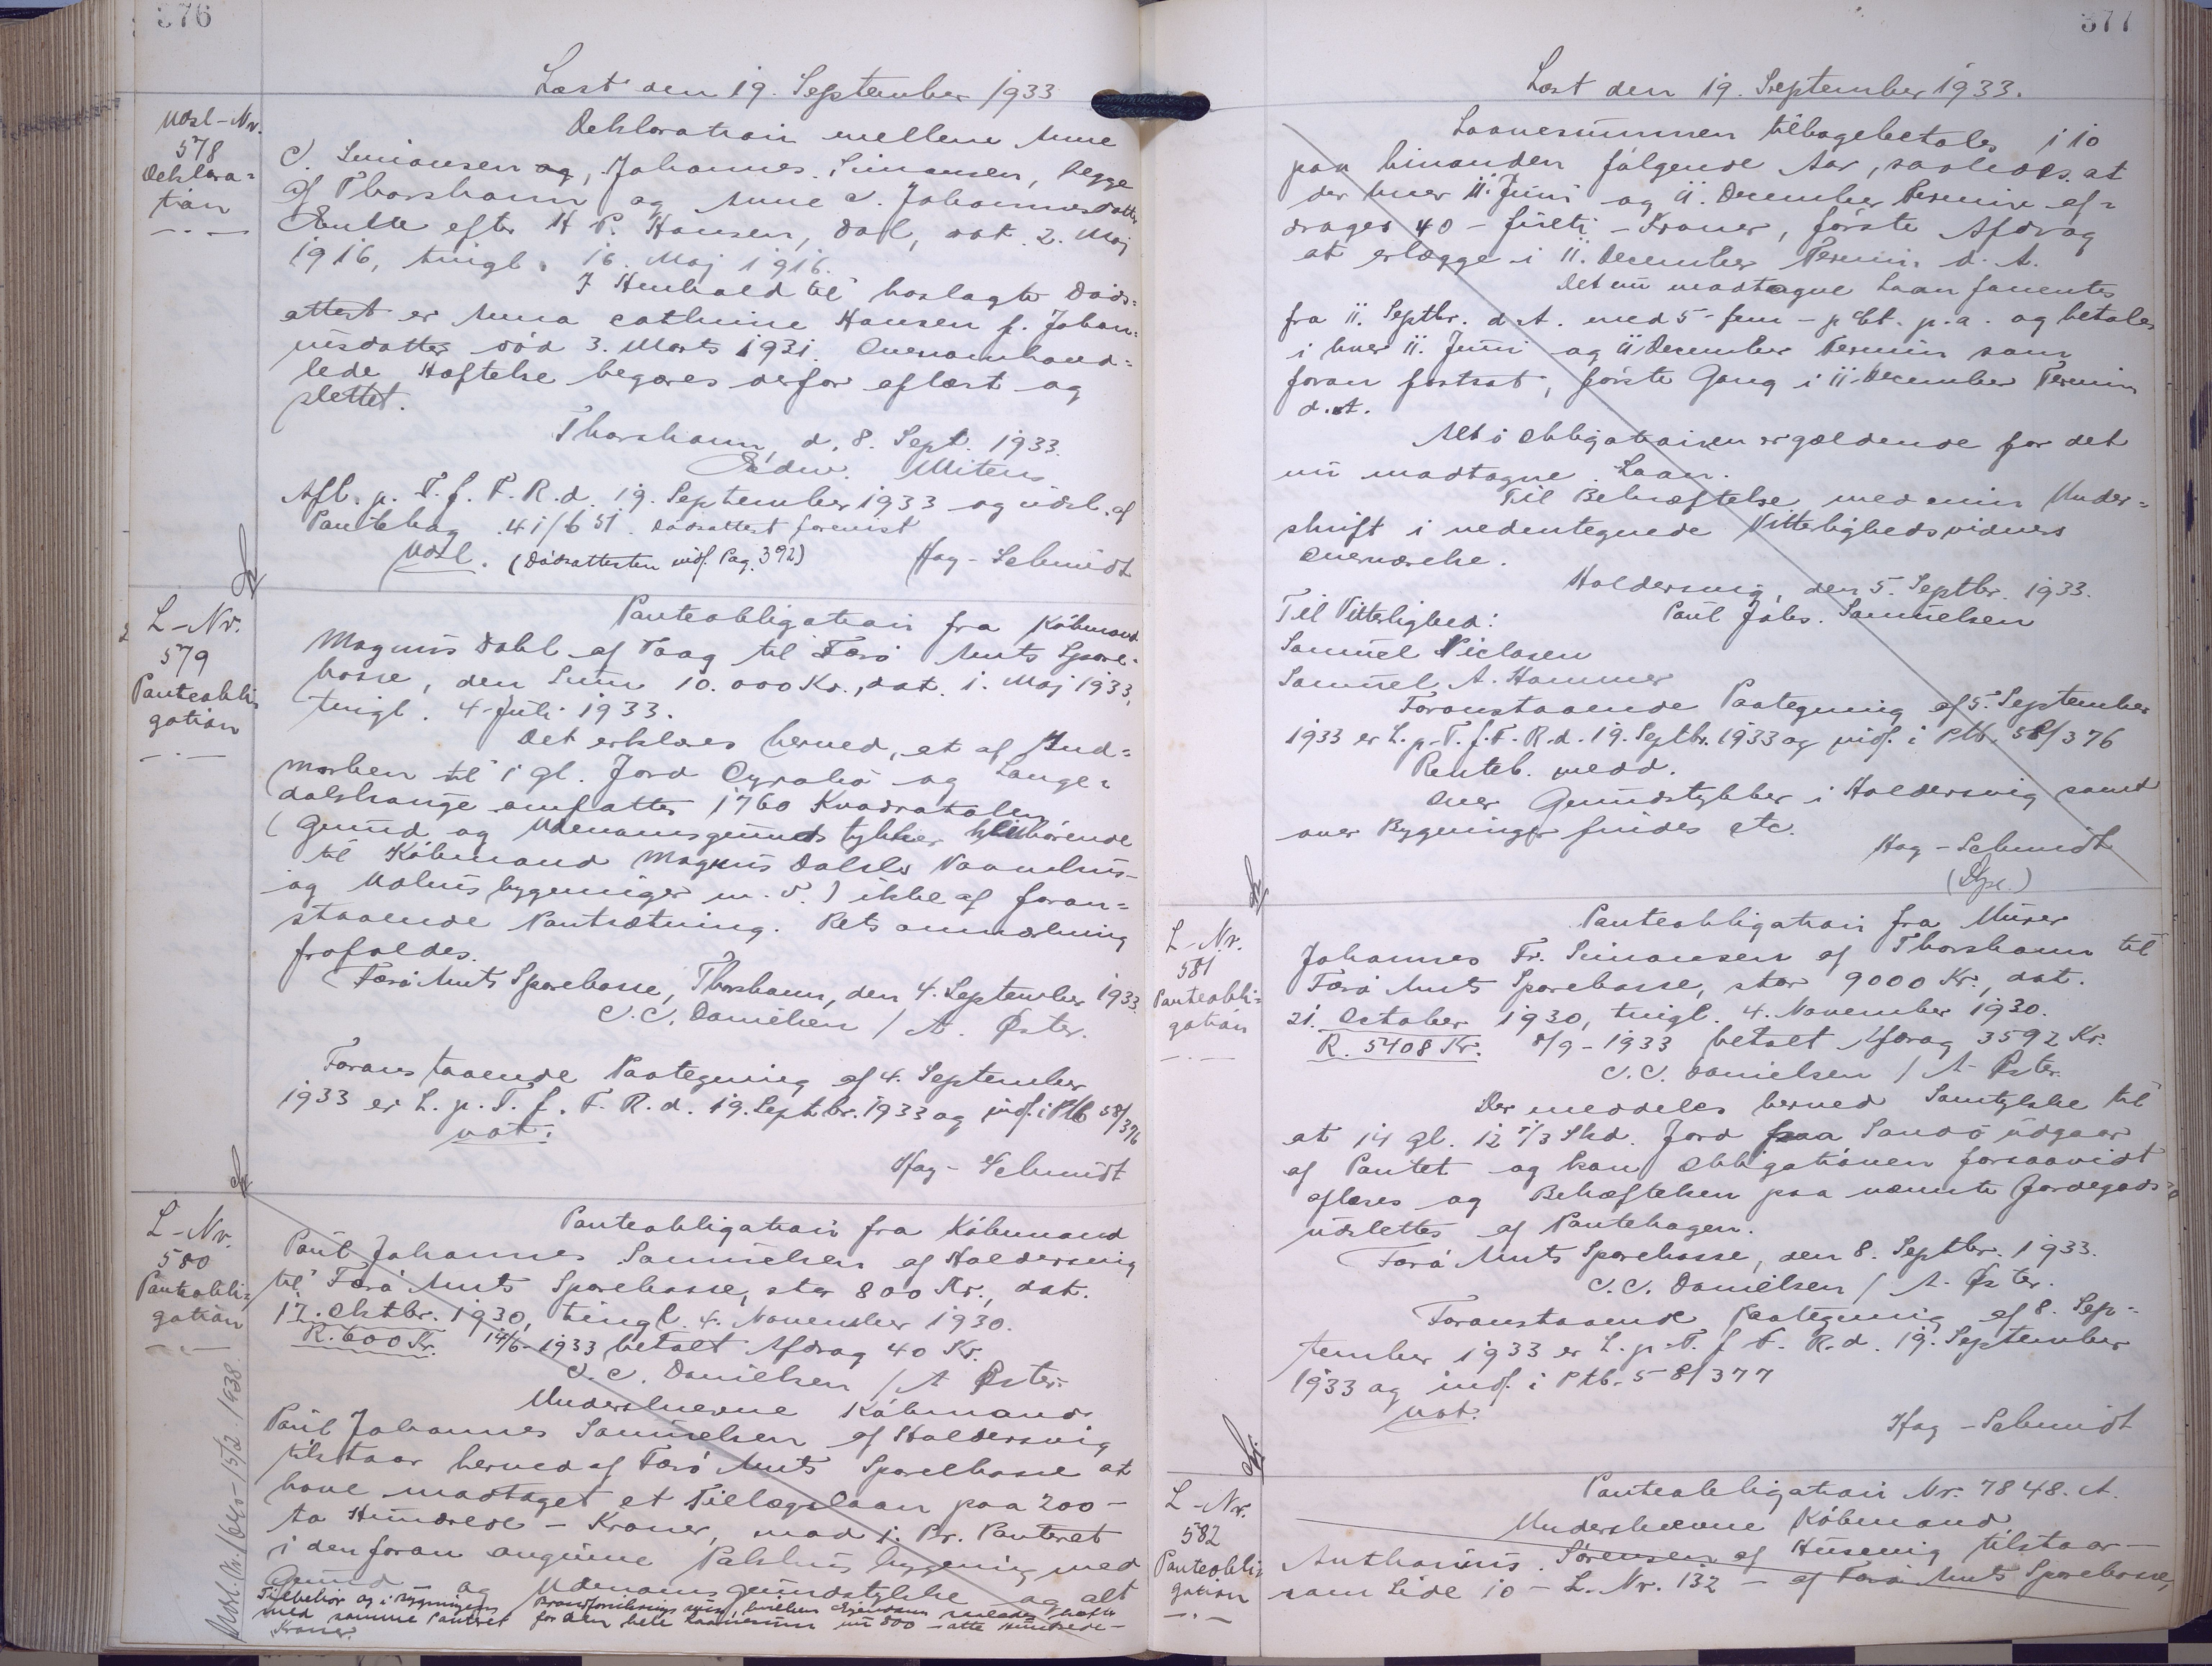 376
Læst den 19. September 1933
Udsl-Nr.
578
Deklara=
tion
Deklaration mellem Anne
C. Simonsen og, Johannes Simonsen, begge
af Thorshavn og Anne C. Johannesdatter
Enke efter H P. Hansen, Dal, dat. 2. Maj
1916, tingl. 16. Maj 1916.
I Henhold til hoslagte Døds=
attest er Anna Cathrine Hansen f. Johan=
nisdatter død 3. Marts 1931. Ovenomhand=
lede Hæftelse begæres derfor aflæst og
slettet.
Thorshavn, d. 8. Sept. 1933.
Edw. Mitens
Afl. p. T. f. F. R. d. 19. September 1933 og udsl. af
Pantebog 41/651. Dødsattest forevist
Udsl. (Dødsattesten indf. Pag. 392) Hag-Schmidt
L-Nr.
579
Panteobli=
gation
Panteobligation fra Købmand
Magnus Dahl af Vaag til Færø Amts Spare=
kasse, den Sum 10.000 Kr., dat. 1. Maj 1933,
tingl. 4. Juli 1933.
Det erklæres herved, at af Ind=
marken til 1 gl. Jord og Lange=
omfatter 1760 Kvadratalen
(Grund og Udenomsgrundstykker tilhørende
til Købmand Magnus Dahls Vaanhus-
og Udhusbygninger m. v.) ikke af foran=
staaende Pantsætning. Retsanmærkning
frafaldes.
Færø Amts Sparekasse, Thorshavn, den 4. September 1933.
C.C. Danielsen / A. Øster.
Foranstaaende Paategning af 4. September
1933 er L. p. T. f. F. R. d. 19. Septbr. 1933 og indf. i Ptb 58/376
not:
Hag-Schmidt
L-Nr.
580
Panteobli=
gation
Udsl. Nr. 1640-15/12. 1938.
Panteobligation fra Købmand
Paul Johannes Samuelsen af Haldersvig
til Færø Amts Sparekasse, stor 800 Kr., dat.
17. Oktbr. 1930, tingl. 4. November 1930.
R. 600 Kr. 14/6-1933 betalt Afdrag 40 Kr.
C.C. Danielsen / A Øster.
Underskrevne Købmand
Paul Johannes Samuelsen af Haldersvig
tilstaar herved af Færø Amts Sparekasse at
have modtaget et Tillægslaan paa 200-
to Hundrede - Kroner, mod 1. Pr. Panteret
i den foran angivne Pakhusbygning med
Grund og Udenomsgrundstykke og alt
Tilbehør og i Bygningens Brandforsikringssum, hvilken Ejendom saaledes hæfter
med samme Panteret for den hele Laanesum nu 800 - otte Hundrede -
Kroner.
377
Læst den 19. September 1933.
Laanesummen tilbagebetales i 10
paa hinanden følgende Aar, saaledes at
der hver 11. Juni og 11. December Termin af=
drages 40 - firti - Kroner, første Afdrag
at erlægge i 11. December Termin d. A.
Det nu modtagne Laan forrentes
fra 11. Septbr. d. A. med 5 - fem - pCt. p.a. og betales
i hver 11. Juni og 11. December Termin som
foran fortsat, første Gang i 11. December Termin
d. A.
Alt i Obligationen er gældende for det
nu modtagne Laan.
Til Bekræftelse med min Under=
skrift i nedentegnede Vitterlighedsvidners
Overværelse.
Haldersvig, den 5. Septbr. 1933.
Til Vitterlighed: Paul Johs. Samuelsen
Samuel Niclasen
Samuel A. Hammer
Foranstaaende Paategning af 5. September
1933 er L. p. T. f. F. R. d. 19. Septbr. 1933 og indf. i Ptb. 58/376
Renteb. medd.
Over Grundstykker i Haldersvig samt
over Bygninger findes etc.
Hag-Schmidt
L-Nr.
581
Panteobli=
gation
Panteobligation fra Murer
Johannes Fr. Simonsen af Thorshavn til
Færø Amts Sparekasse, stor 9000 Kr., dat.
21. October 1930, tingl. 4. November 1930.
R. 5408 Kr. 8/9-1933 betalt Afdrag 3592 Kr.
C.C. Danielsen / A Øster.
Der meddeles herved Samtykke til
at 14 gl. 12 1/3 Skd. Jord paa Sandø udgaar
af Pantet og kan Obligationen forsaavidt
aflæses og Behæftelsen paa nævnte Jordegods
udslettes af Pantebogen.
Færø Amts Sparekasse, den 8. Septbr. 1933.
C.C. Danielsen / A. Øster.
Foranstaaende Paategning af 8. Sep=
tember 1933 er L. p. T. f. F. R. d. 19. September
1933 og indf. i Ptb. 58/377
not:
Hag-Schmidt
L-Nr.
582
Panteobli=
gation
Panteobligation Nr. 7848. A.
Underskrevne Købmand
Anthonius Sørensen af Husevig tilstaar-
som Side 10 - L. Nr. 132 - af Færø Amts Sparekasse,